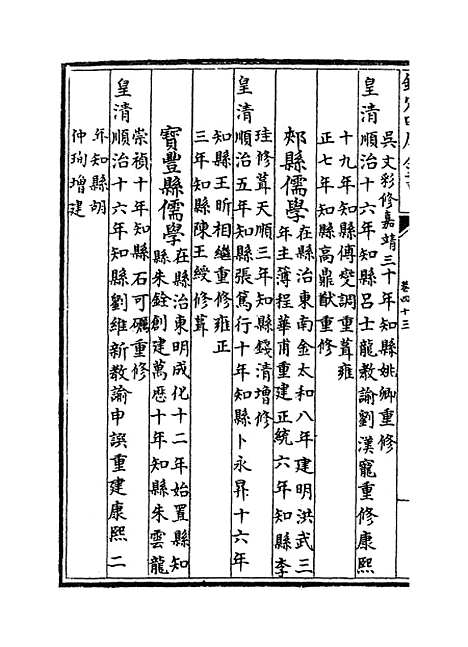 吳文彩修嘉靖三十年知縣姚卿重修
皇清順治十六年知縣呂士龍教諭劉漢寵重修康熙
十九年知縣傅燮調重葺雍
正七年知縣高鼎猷重修
郟縣儒學在縣治東南金太和八年建明洪武三
年主薄程華甫重建正統六年知縣李
珪修葺天順三年知縣錢清增修
皇清順治五年知縣張篤行十年知縣卜永昇十六年
知縣王昕相繼重修雍正
三年知縣陳王綬修葺
寶豐縣儒學在縣治東明成化十二年始置縣知
縣朱銓創建萬歷十年知縣朱雲龍
崇禎十年知縣石可礪重修
皇清順治十六年知縣劉維新教諭申誤重建康熙二
年知縣胡
仲珣增建
卷四十三